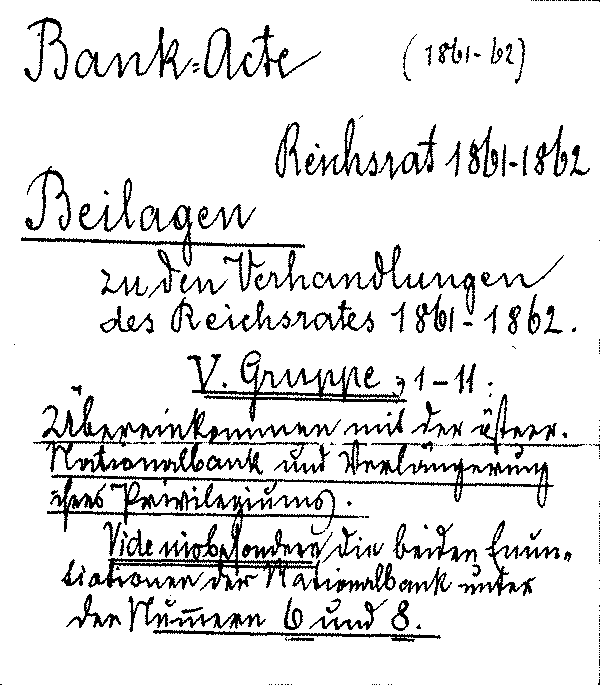 Bank=Acte (1861-62)
Reichsrat 1861-1862
Beilagen
zu den Verhandlungen
des Reichsrates 1861-1862.
V. Gruppe, 1-11:
Übereinkommen mit der österr.
Nationalbank und Verlängerung
ihres Privilegiums.
Vide insbesondere die beiden Enun-
tiationen der Nationalbank unter
den Nummern 6 und 8.